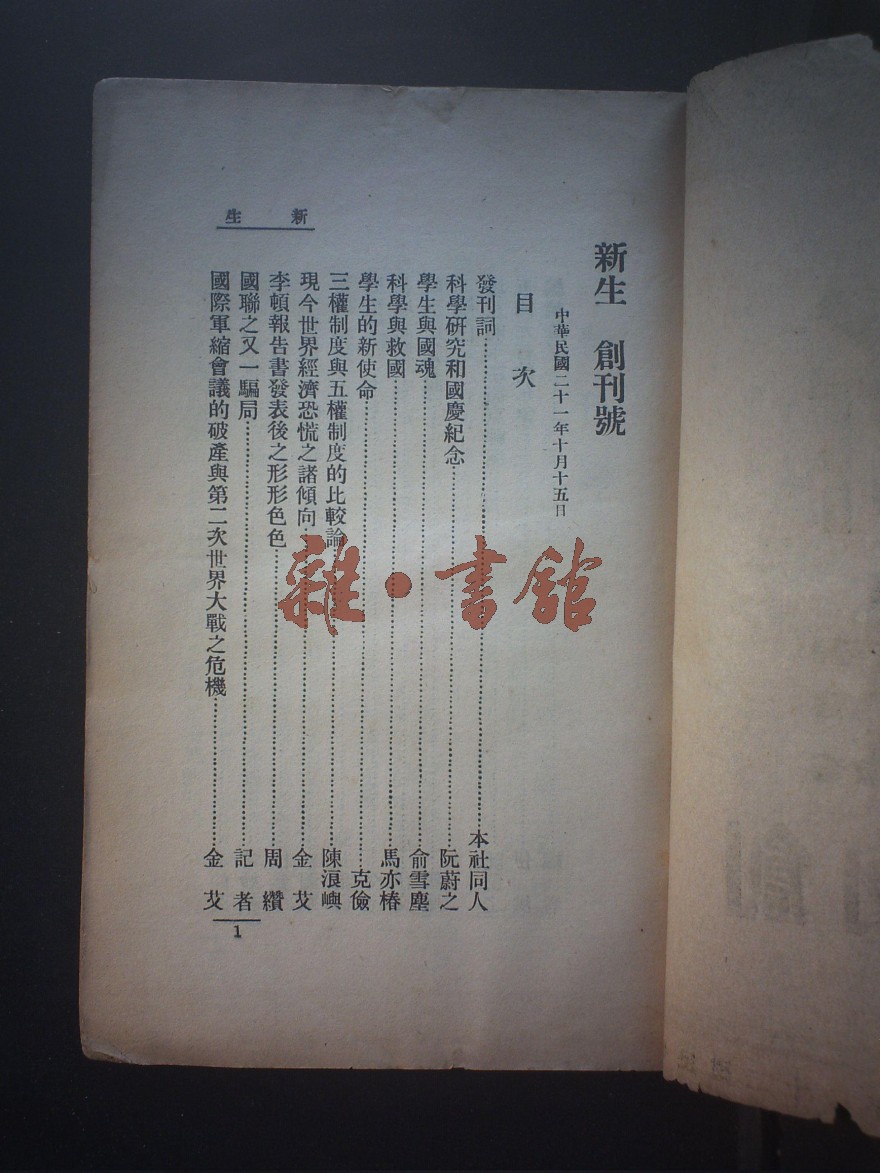 新生　創刊號
中華民國二十一年十月十五日
目次
發刊詞…………本社同人
科學研究和國慶紀念…………阮蔚之
學生與國魂…………俞雪塵
科學與救國…………馬亦椿
學生的新使命…………克儉
三權制度與五權制度的比較論…………陳浪嶼
現今世界經濟恐慌之諸傾向…………金艾
李頓報告書發表後之形形色色…………周纘
國聯之又一騙局…………記者
國際軍縮會議的破產與第二次世界大戰之危機…………金艾
新生
1
雜·書館